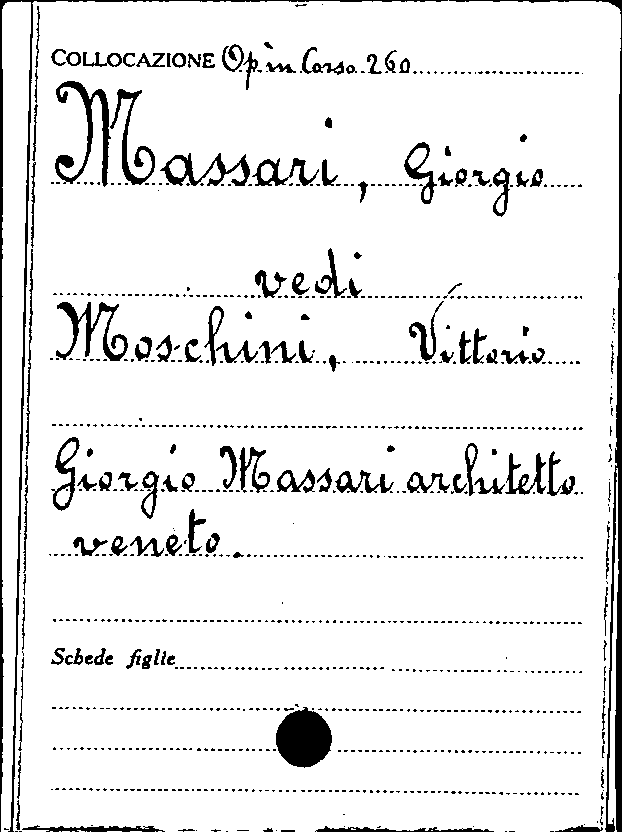 COLLOCAZIONE Op in Corso 260
Massari, Giorgio
vedi
Moschini, Vittorio
Giorgio Massari architetto
veneto.
Schede figlie